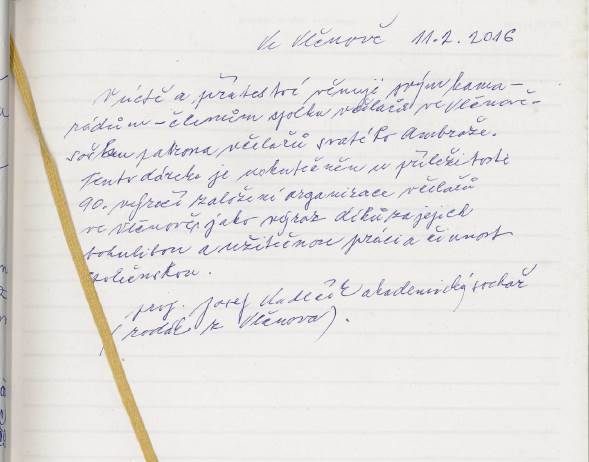 Ve Vlčnově 11.2.2016
V úctě a přátelství věnuji svým kama-
rádům - členům spolku včelařů ve Vlčnově -
sošku patrona včelařů svatého Ambrože.
Tento dárek je uskutečněn u příležitosti
90. výročí založení organizace včelařů
ve Vlčnově, jako výraz díků za jejich
bohulibou a užitečnou práci a činnost
společenskou.
prof. Josef akademický sochař
(rodák z Vlčnova).